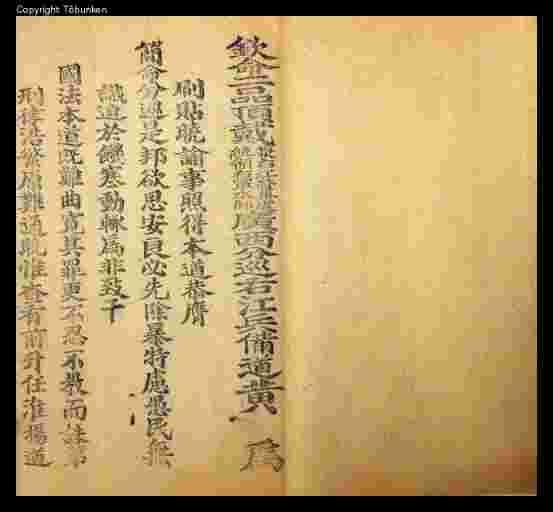 Copyright Tōbunken
欽命二品頂戴廣西分巡右江兵備道黃 為
刷貼曉諭事照得本道恭膺
簡命分巡是邦欲思安良必先除暴特慮愚民無
識迫於饑寒動輒為非致干
國法本道既難曲寬其罪更不忍不教而誅第
刑律浩繁層難通眂惟查有前升任淮揚道